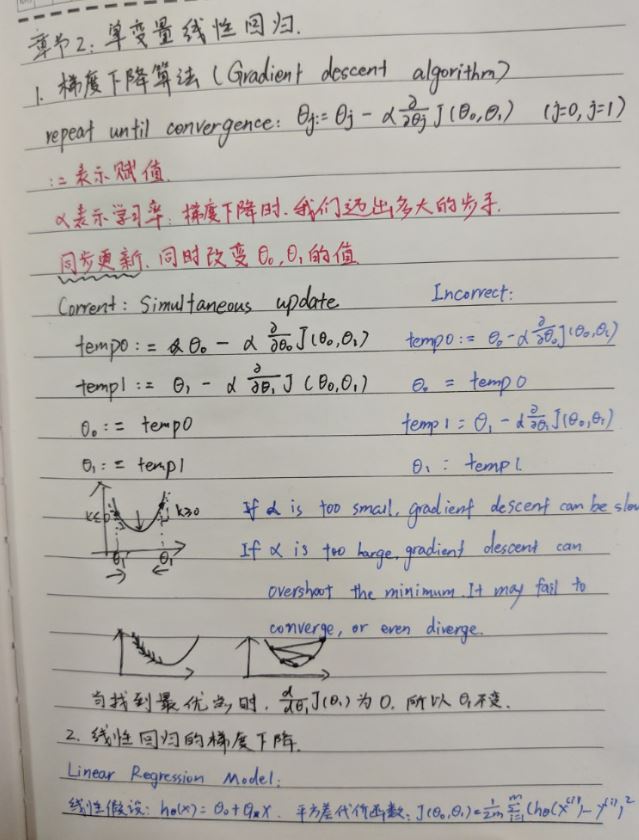 章节2：单变量线性回归.
1. 梯度下降算法 (Gradient descent algorithm)
repeat until convergence: θj := θj - α ∂/∂θj J(θ₀,θ₁) (j=0, j=1)
:= 表示赋值.
α表示学习率：梯度下降时.我们迈出多大的步子.
同步更新.同时改变θ₀,θ₁的值
Corrent: Simultaneous update Incorrect:
temp0 := θ₀ - α ∂/∂θ₀ J(θ₀,θ₁) temp0 := θ₀ - α ∂/∂θ₀ J(θ₀,θ₁)
temp1 := θ₁ - α ∂/∂θ₁ J(θ₀,θ₁) θ₀ = temp0
θ₀ := temp0 temp1 = θ₁ - α ∂/∂θ₁ J(θ₀,θ₁)
θ₁ := temp1 θ₁ : temp1.
k≤0 k≥0 If α is too small, gradient descent can be slow
If α is too large, gradient descent can
θ₁ θ₁ overshoot the minimum. It may fail to
converge, or even diverge.
当找到最优点时，d/dθ₁ J(θ₁) 为0. 所以θ₁不变.
2. 线性回归的梯度下降.
Linear Regression Model:
线性假设: hθ(x) = θ₀+θ₁x. 平方差代价函数: J(θ₀,θ₁) = 1/2m ∑ᵢ₌₁ᵐ (hθ(x⁽ⁱ⁾) - y⁽ⁱ⁾)²